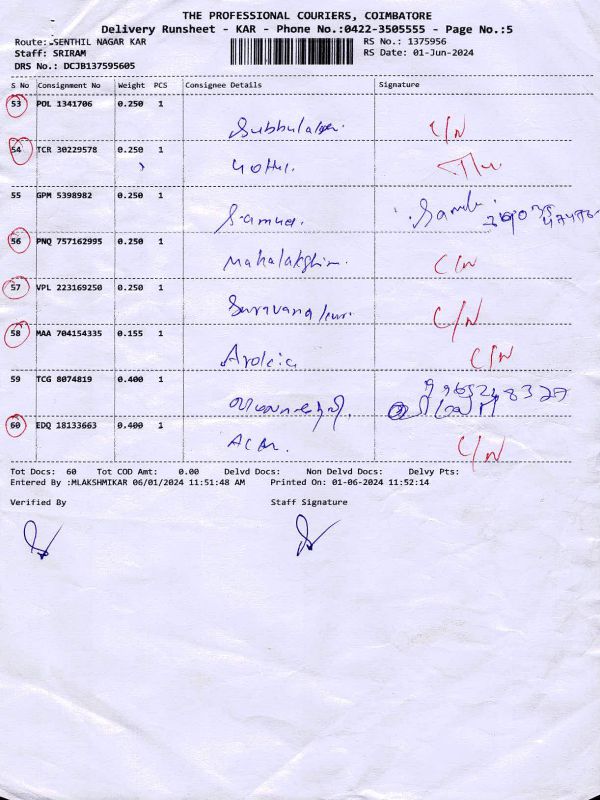 THE PROFESSIONAL COURIERS, COIMBATORE
Delivery Runsheet - KAR - Phone No.:0422-3505555 - Page No.:5
Route: SENTHIL NAGAR KAR RS No.: 1375956
Staff: SRIRAM RS Date: 01-Jun-2024
DRS No.: DCJB137595605
S No Consignment No Weight PCS Consignee Details Signature
53 POL 1341706 0.250 1
C/N
54 TCR 30229578 0.250 1
55 GPM 5398982 0.250 1
Samua.
56 PNQ 757162995 0.250 1
Mahalakshim. C/N
57 VPL 223169250 0.250 1
C/N
58 MAA 704154335 0.155 1
Arokia C/N
59 TCG 8074819 0.400 1
60 EDQ 18133663 0.400 1
C/N
Tot Docs: 60 Tot COD Amt: 0.00 Delvd Docs: Non Delvd Docs: Delvy Pts:
Entered By :MLAKSHMIKAR 06/01/2024 11:51:48 AM Printed On: 01-06-2024 11:52:14
Verified By Staff Signature